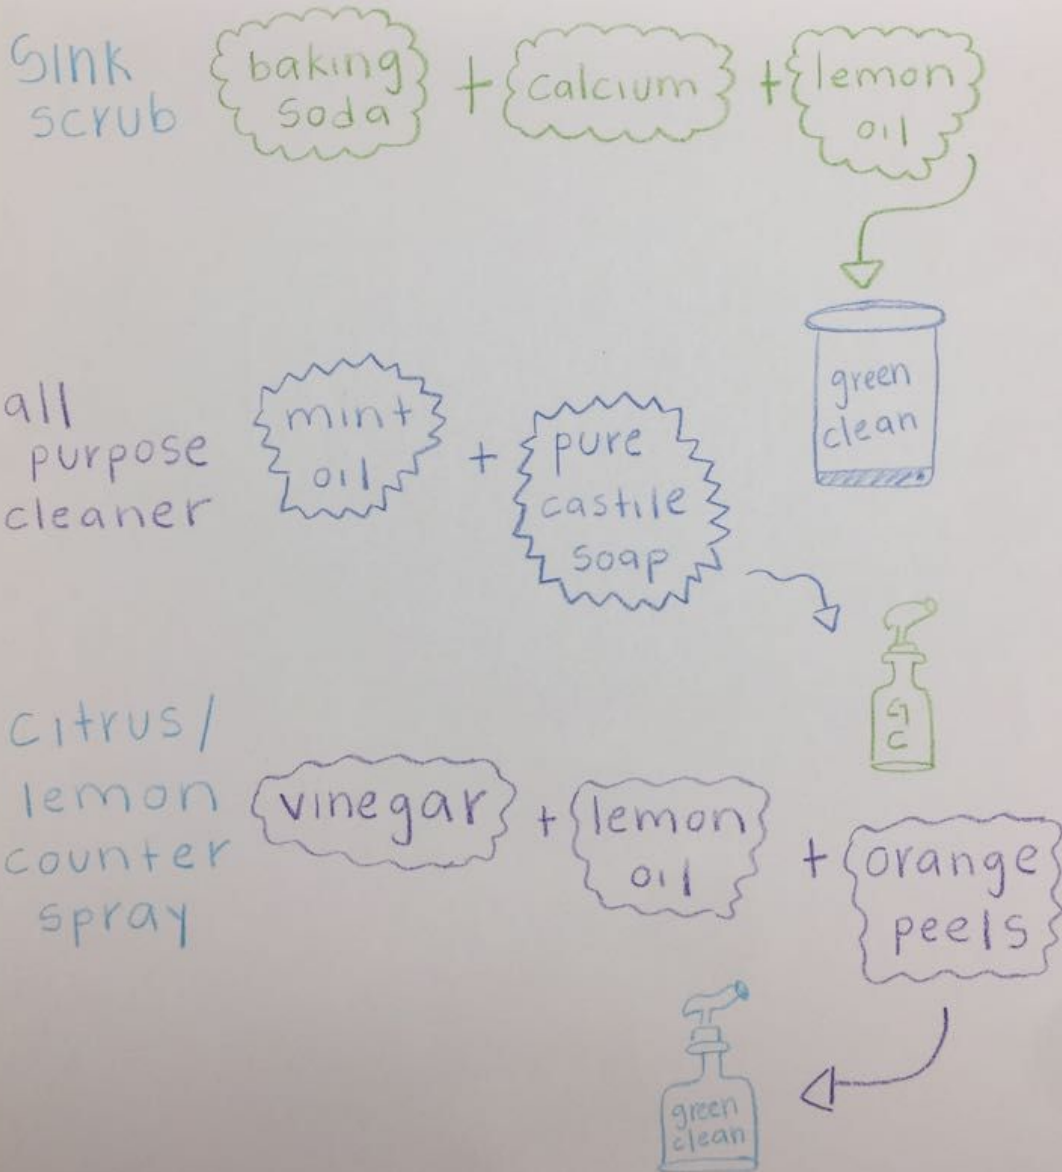 Sink
scrub
baking
soda
+
calcium
+
lemon
oil
green
clean
all
purpose
cleaner
mint
oil
+
pure
castile
soap
G
C
citrus/
lemon
counter
spray
vinegar
+
lemon
oil
+
orange
peels
green
clean